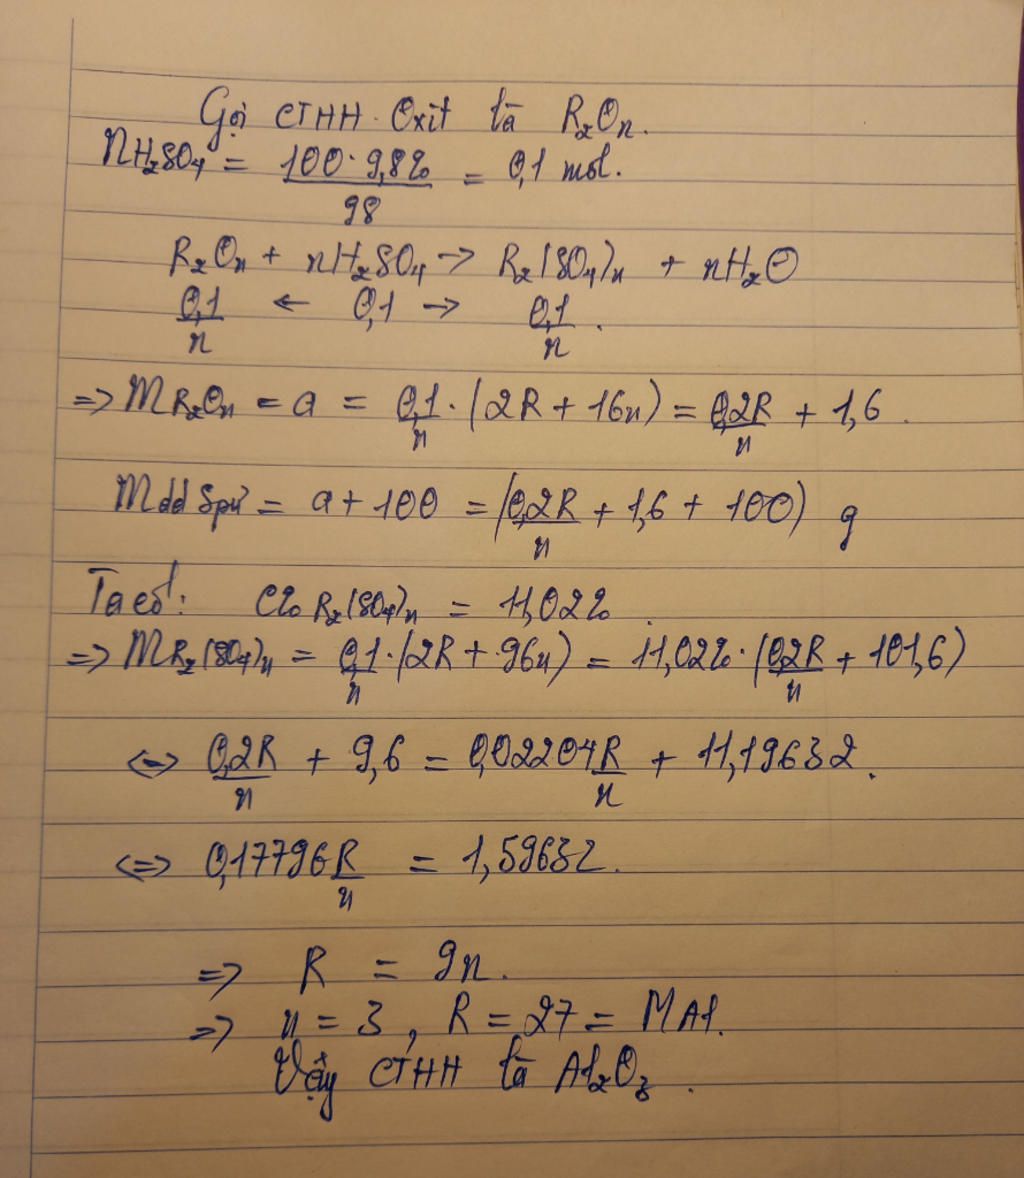 Gọi CTHH Oxit là R₂Oₙ.
nH₂SO₄ = 100.9,8%/98 = 0,1 mol.
R₂Oₙ + nH₂SO₄ → R₂(SO₄)ₙ + nH₂O
0,1/n ← 0,1 → 0,1/n.
=> mR₂Oₙ = a = 0,1/n.(2R + 16n) = 0,2R/n + 1,6.
mdd spứ = a + 100 = (0,2R/n + 1,6 + 100) g
Ta có: C% R₂(SO₄)ₙ = 11,02%.
=> mR₂(SO₄)ₙ = 0,1/n.(2R + 96n) = 11,02%.(0,2R/n + 101,6)
<=> 0,2R/n + 9,6 = 0,02204R/n + 11,19632.
<=> 0,17796R/n = 1,59632.
=> R = 9n.
=> n = 3, R = 27 = MAl.
Vậy CTHH là Al₂O₃.